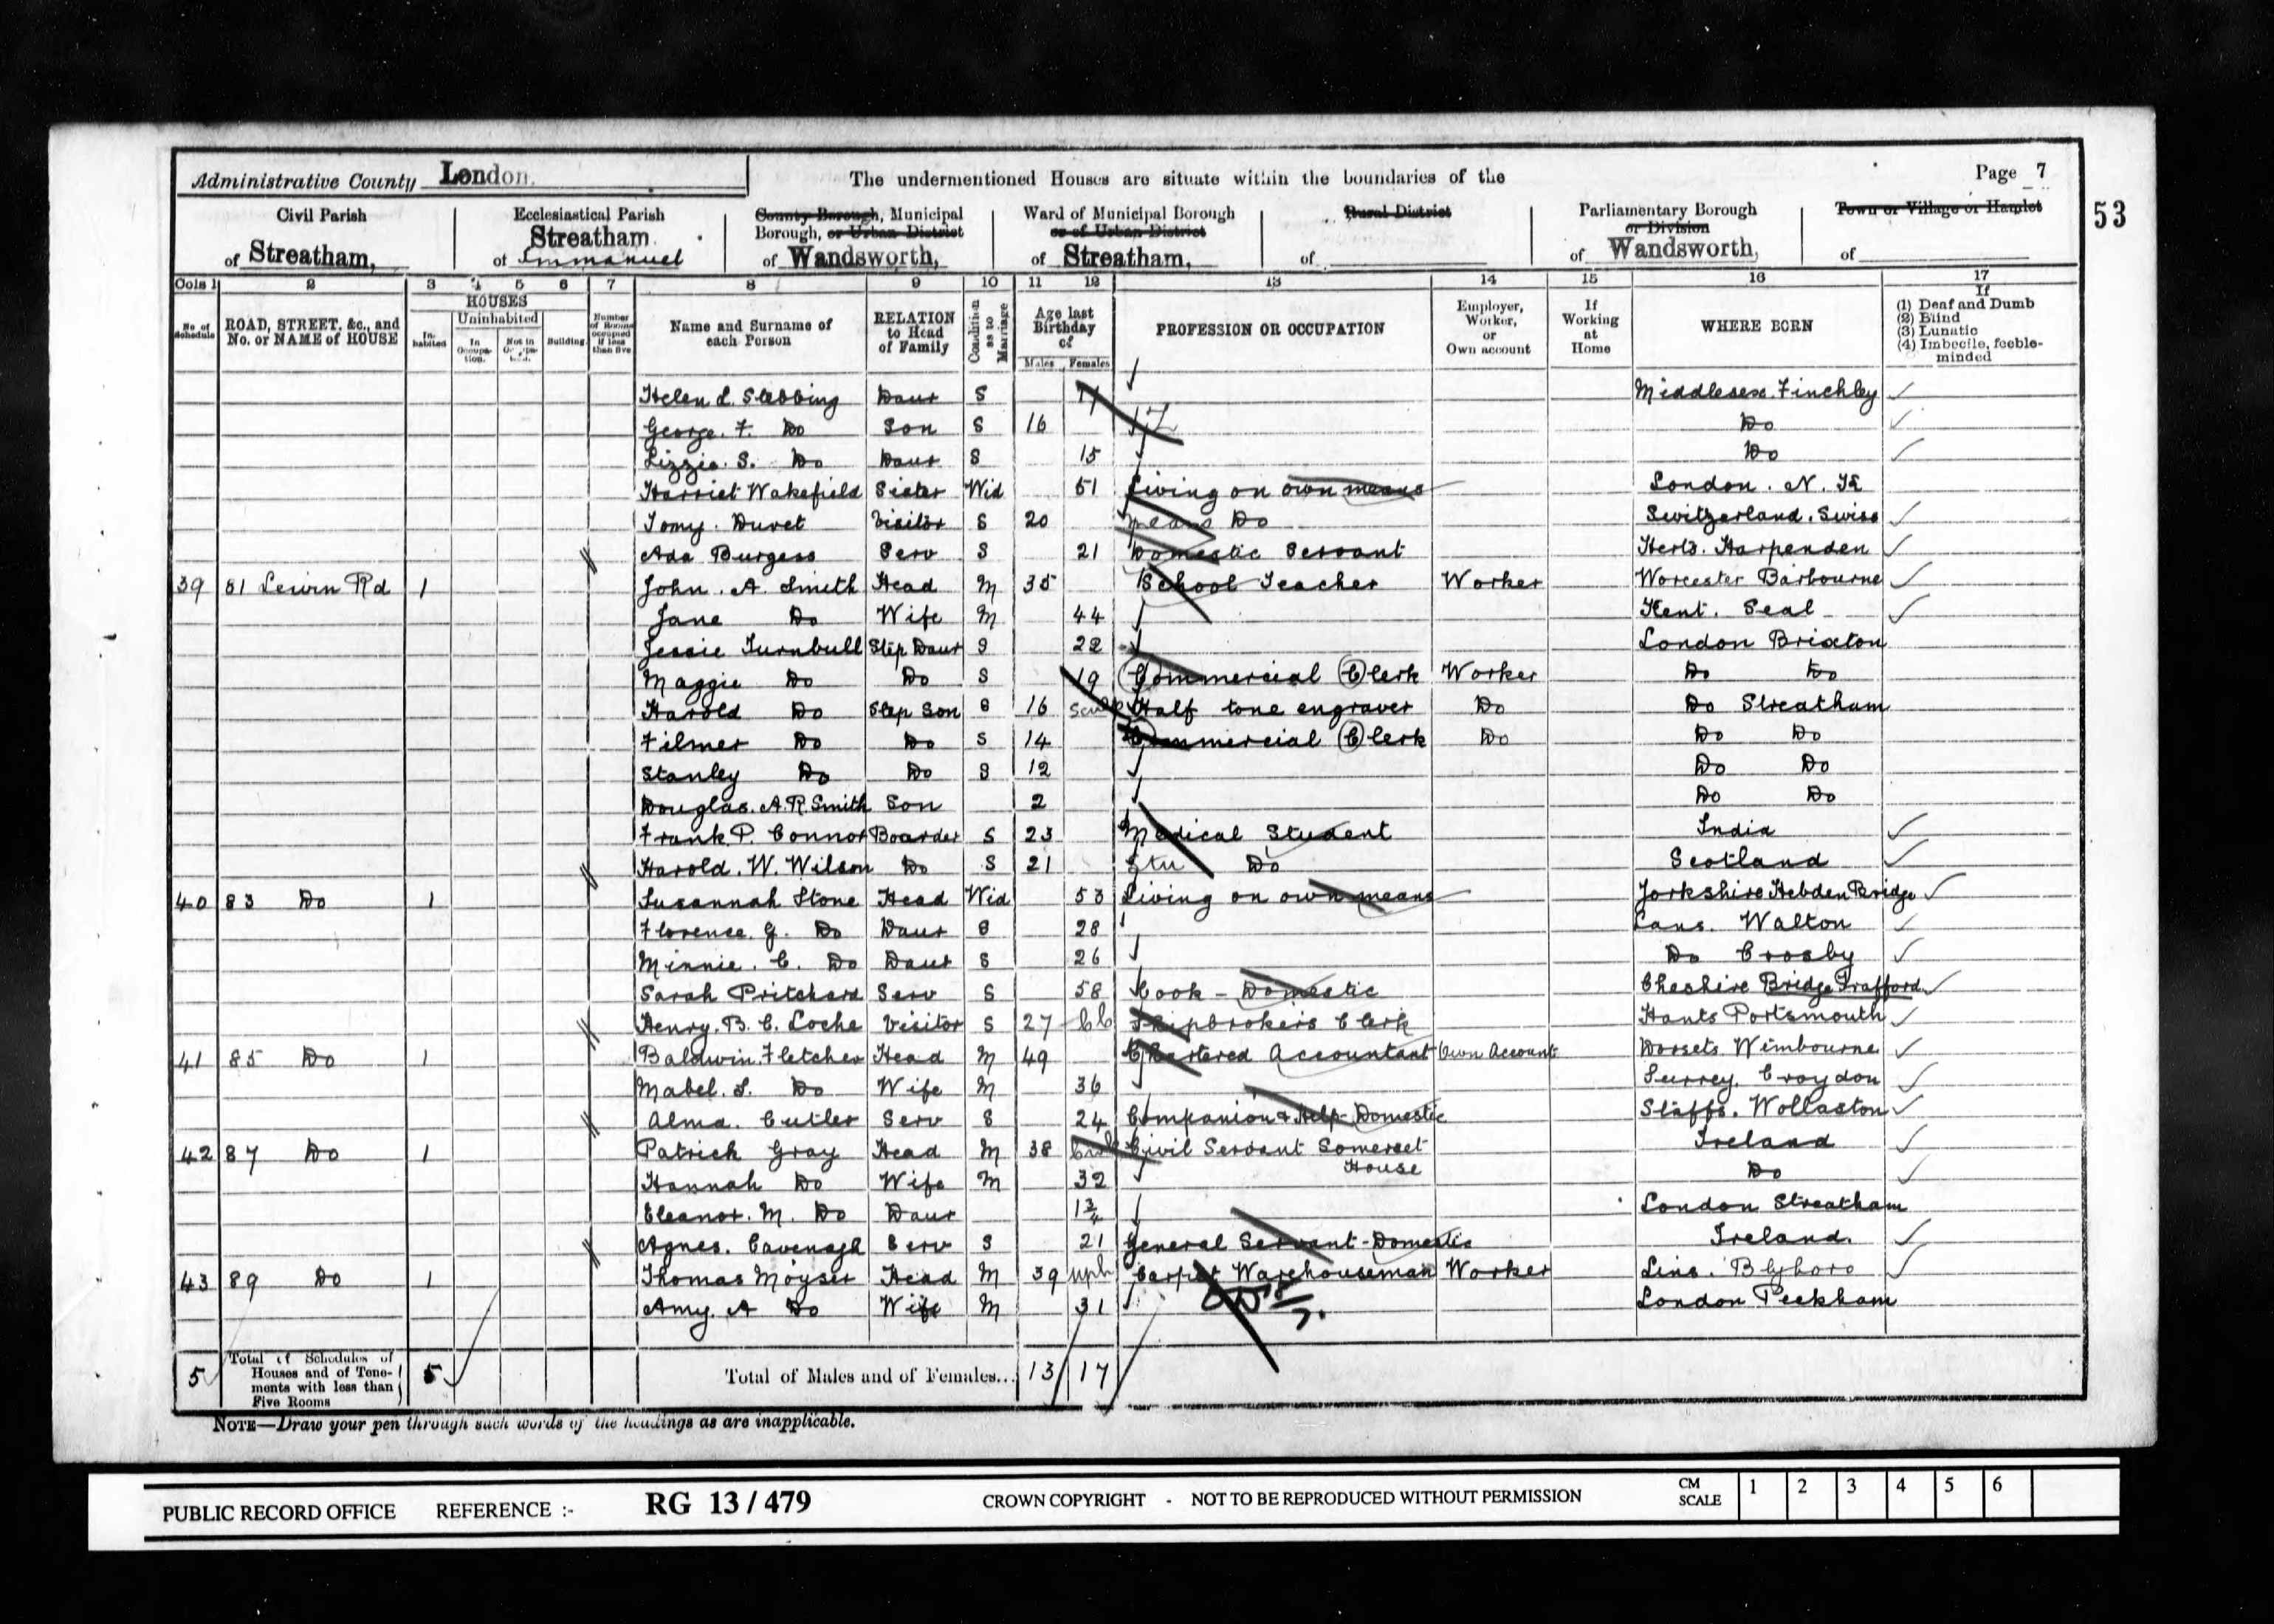 Administrative County London.
The undermentioned Houses are situate within the boundaries of the
Page 7
53
Civil Parish of Streatham,
Ecclesiastical Parish of Streatham Immanuel
County Borough, Municipal Borough, or Urban District of Wandsworth,
Ward of Municipal Borough or of Urban District of Streatham,
Rural District of
Parliamentary Borough or Division of Wandsworth,
Town or Village or Hamlet of
Cols 1 2 3 4 5 6 7 8 9 10 11 12 13 14 15 16 17
No. of Schedule
ROAD, STREET, &c., and No. or NAME of HOUSE
HOUSES
Inhabited
Uninhabited
In Occupation.
Not in Occupation.
Building
Number of Rooms occupied if less than five
Name and Surname of each Person
RELATION to Head of Family
Condition as to Marriage
Age last Birthday of
Males Females
PROFESSION OR OCCUPATION
Employer, Worker, or Own account
If Working at Home
WHERE BORN
If
(1) Deaf and Dumb
(2) Blind
(3) Lunatic
(4) Imbecile, feeble-minded
Helen L. Stebbing Daur S 17 Middlesex Finchley
George. F. Do Son S 16 Do
Lizzie. S. Do Daur S 15 Do
Harriet Wakefield Sister Wid 51 Living on own means London. N.
Tomy. Duvet Visitor S 20 Do Switzerland. Swiss
Ada Burgess Serv S 21 Domestic Servant Herts. Harpenden
39 81 Lewin Rd 1 John. A. Smith Head M 35 School Teacher Worker Worcester Barbourne
Jane Do Wife M 44 Kent. Seal
Jessie Turnbull Step Daur S 22 London Brixton
Maggie Do Do S 19 Commercial Clerk Worker Do Do
Harold Do Step Son S 16 Half tone engraver Do Do Streatham
Filmer Do Do S 14 Commercial Clerk Do Do Do
Stanley Do Do S 12 Do Do
Douglas. A. R. Smith Son 2 Do Do
Frank P. Connor Boarder S 23 Medical Student India
Harold. W. Wilson Do S 21 Stu Do Scotland
40 83 Do 1 Susannah Stone Head Wid 53 Living on own means Yorkshire Hebden Bridge
Florence. G. Do Daur S 28 Lans. Walton
Minnie. C. Do Daur S 26 Do Crosby
Sarah Pritchard Serv S 58 Cook - Domestic Cheshire Bridge Trafford
Henry. B. C. Loche Visitor S 27 Shipbrokers Clerk Hants Portsmouth
41 85 Do 1 Baldwin. Fletcher Head M 49 Chartered Accountant Own Account Dorsets Wimbourne
Mabel. S. Do Wife M 36 Surrey. Croydon
Alma. Cutler Serv S 24 Companion & Help Domestic Staffs. Wollaston
42 87 Do 1 Patrick Gray Head M 38 Civil Servant Somerset House Ireland
Hannah Do Wife M 32 Do
Eleanor. M. Do Daur 1 3/4 London Streatham
Agnes. Cavenagh Serv S 21 General Servant - Domestic Ireland.
43 89 Do 1 Thomas Moyser Head M 39 Carpet Warehouseman Worker Linc. Blyboro
Amy. A Do Wife M 31 London Peckham
5 Total of Schedules of Houses and of Tenements with less than Five Rooms 5
Total of Males and of Females... 13 17
NOTE—Draw your pen through such words of the headings as are inapplicable.
PUBLIC RECORD OFFICE REFERENCE :- RG 13 / 479 CROWN COPYRIGHT - NOT TO BE REPRODUCED WITHOUT PERMISSION
CM SCALE 1 2 3 4 5 6